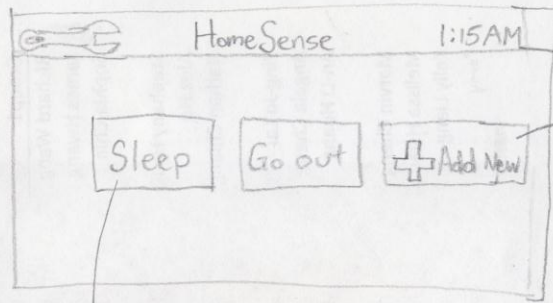 HomeSense 1:15AM
Sleep Go out Add New